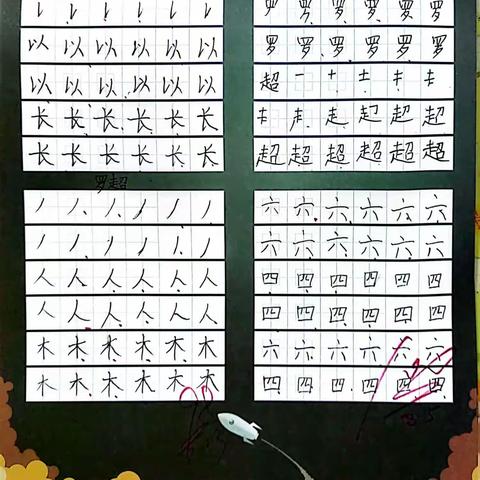 以以以以以以
以以以以以以
长长长长长长
长长长长长长
罗罗罗罗罗
罗罗罗罗罗罗
超一十土
走起超超
超超超超超超
罗超
丿丿丿丿丿丿
丿丿丿丿丿丿
人人人人人人
人人人人人人
木木木木木木
木木木木木木
六六六六六六
六六六六六六
四四四四四四
四四四四四四
六六六六六六
四四四四四四